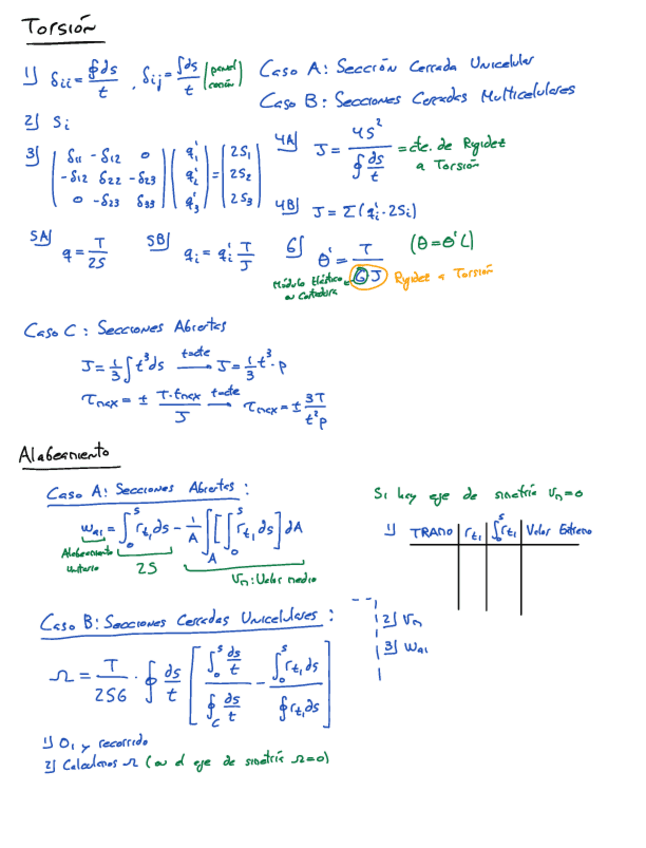 Torsión
1) δii = ∮ds/t , δij = ∫ds/t (panel común)
Caso A: Sección Cerrada Unicelular
Caso B: Secciones Cerradas Multicelulares
2) Si
3) ( δ11 -δ12 0 ; -δ12 δ22 -δ23 ; 0 -δ23 δ33 ) ( q1' ; q2' ; q3' ) = ( 2S1 ; 2S2 ; 2S3 )
4A) J = 4S² / ∮ds/t = cte. de Rigidez a Torsión
4B) J = Σ(qi' · 2Si)
5A) q = T/2S
5B) qi = qi' T/J
6) θ' = T/GJ (θ = θ'L)
Módulo Elástico en Cortadura
Rigidez a Torsión
Caso C: Secciones Abiertas
J = 1/3 ∫t³ds t=cte → J = 1/3 t³ · p
τmax = ± T·tmax/J t=cte → τmax = ± 3T/t²p
Alabeamiento
Caso A: Secciones Abiertas:
wa1 = ∫₀ˢ rt1 ds - 1/A ∫A [∫₀ˢ rt1 ds] dA
Alabeamiento Unitario
2S
Vm: Valor medio
Si hay eje de simetría Vm=0
1) TRAMO | rt1 | ∫₀ˢ rt1 | Valor Extremo
2) Vm
3) wa1
Caso B: Secciones Cerradas Unicelulares:
Ω = T/2SG · ∮ ds/t [ ∫₀ˢ ds/t / ∮C ds/t - ∫₀ˢ rt1 ds / ∮ rt1 ds ]
1) O1 y recorrido
2) Calculamos Ω (en el eje de simetría Ω=0)